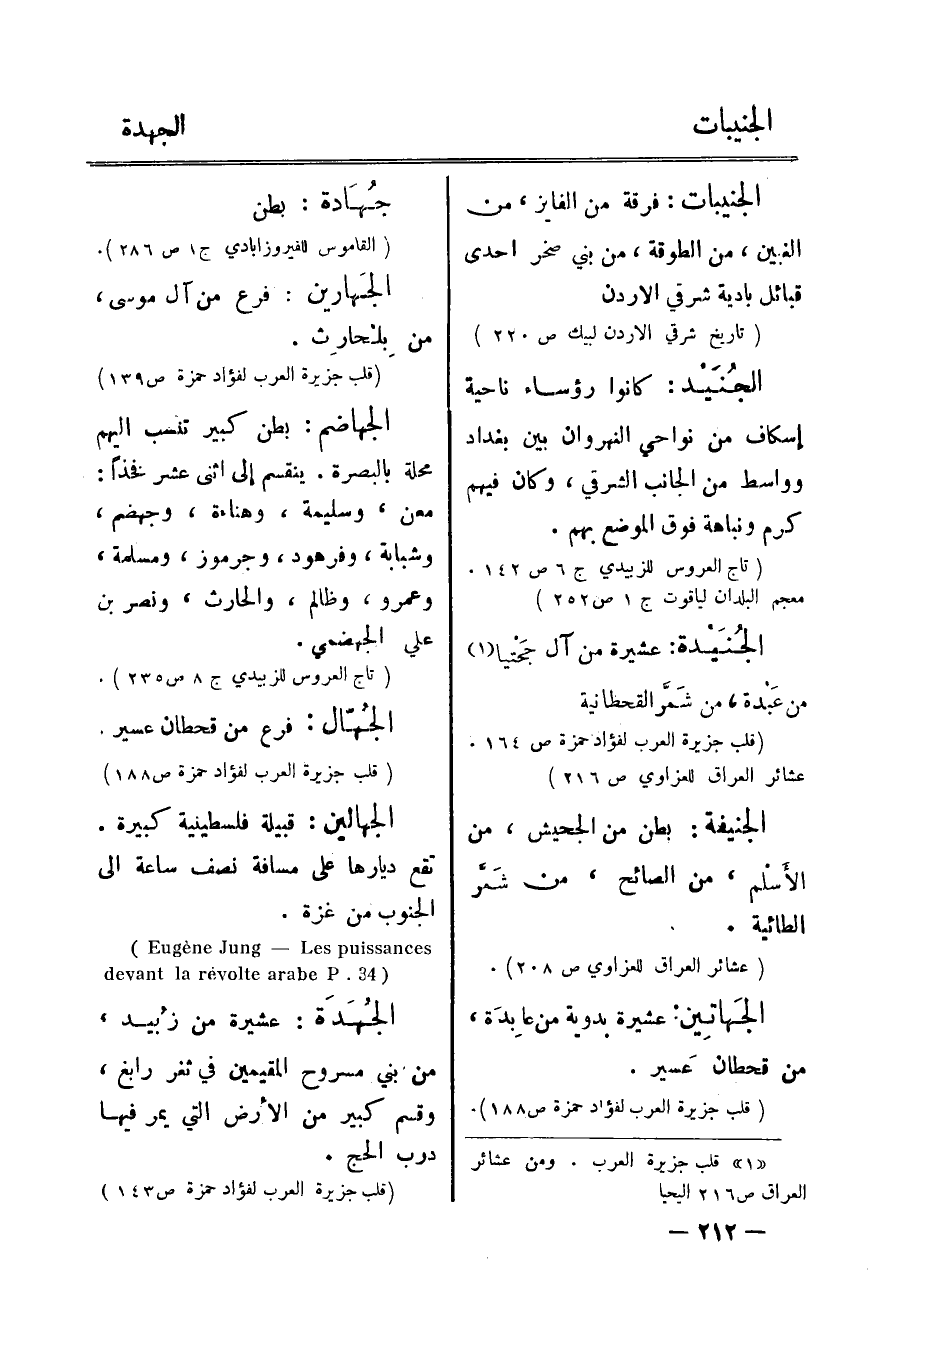 الجنيبات
الجهدة
الجنيبات : فرقة من الفايز ، من
الغبين ، من الطوقة ، من بني صخر احدى
قبائل بادية شرقي الاردن
( تاريخ شرقي الاردن لبيك ص ٢٢٠ )
الجُنَيْد : كانوا رؤساء ناحية
إسكاف من نواحي النهروان بين بغداد
وواسط من الجانب الشرقي ، وكان فيهم
كرم ونباهة فوق الموضع بهم .
( تاج العروس للزبيدي ج ٦ ص ١٤٢ .
معجم البلدان لياقوت ج ١ ص ٢٥٢ )
الجُنَيْدة : عشيرة من آل جَحْنيا (١)
من عَبْدة ، من شَمَّر القحطانية
(قلب جزيرة العرب لفؤاد حمزة ص ١٦٤ .
عشائر العراق للعزاوي ص ٢١٦ )
الجنيفة : بطن من الجحيش ، من
الأَسْلم ، من الصائح ، من شَمَّر
الطائية .
( عشائر العراق للعزاوي ص ٢٠٨) .
الجَهاتِين : عشيرة بدوية من عابِدَة ،
من قحطان عَسير .
( قلب جزيرة العرب لفؤاد حمزة ص١٨٨).
«١» قلب جزيرة العرب . ومن عشائر
العراق ص٢١٦ اليحيا
جُهَادة : بطن
( القاموس للفيروزابادي ج١ ص ٢٨٦ ).
الجَهارين : فرع من آل موسى ،
من بِلْحارِث .
(قلب جزيرة العرب لفؤاد حمزة ص١٣٩)
الجهاضم : بطن كبير تنسب اليهم
محلة بالبصرة . ينقسم إلى اثنى عشر فخذاً :
معن ، وسليمة ، وهناءة ، وجهضم ،
وشبابة ، وفرهود ، وجرموز ، ومسلمة ،
وعمرو ، وظالم ، والحارث ، ونصر بن
علي الجهضمي .
( تاج العروس للزبيدي ج ٨ ص ٢٣٥ ) .
الجُهّال : فرع من قحطان عسير .
( قلب جزيرة العرب لفؤاد حمزة ص١٨٨)
الجهالين : قبيلة فلسطينية كبيرة .
تقع ديارها على مسافة نصف ساعة الى
الجنوب من غزة .
( Eugène Jung — Les puissances
devant la révolte arabe P . 34 )
الجُهَدَة : عشيرة من زُبيد ،
من بني مسروح المقيمين في ثغر رابغ ،
وقسم كبير من الأرض التي يمر فيها
درب الحج .
(قلب جزيرة العرب لفؤاد حمزة ص١٤٣ )
— ٢١٢ —